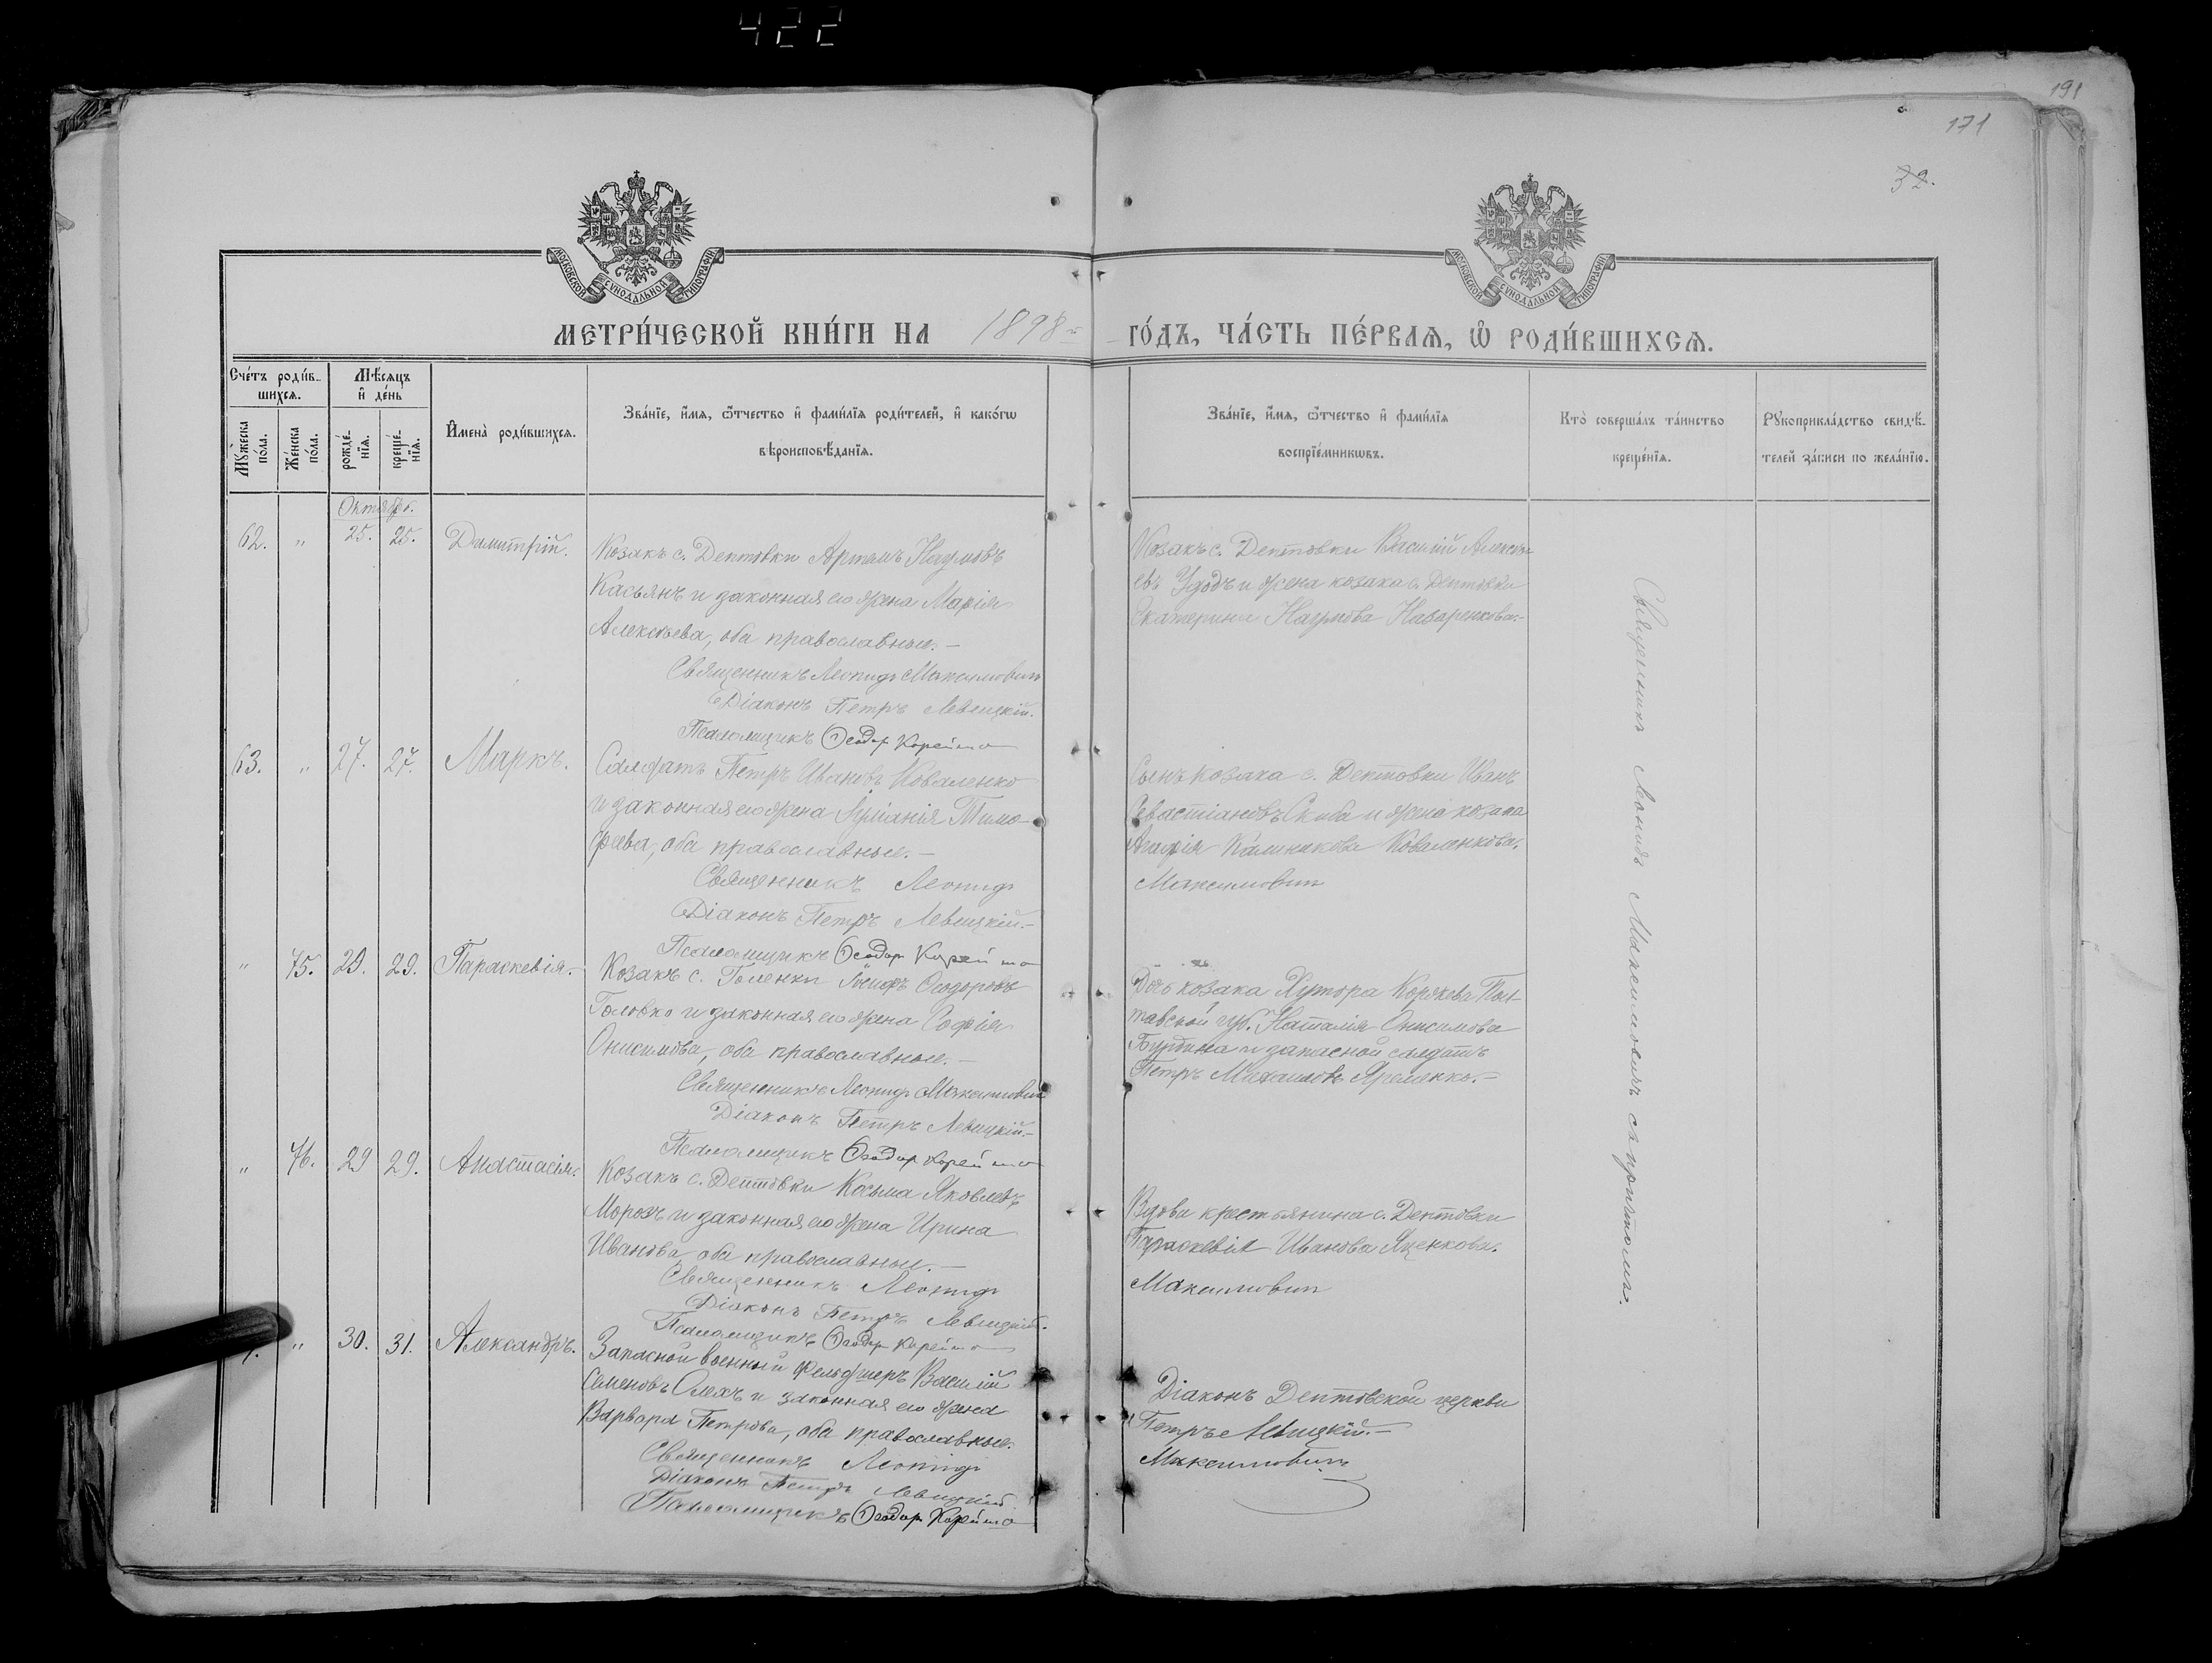 422
191
171
32.
МОСКОВСКОЙ СѴНОДАЛЬНОЙ ТИПОГРАФІИ
МОСКОВСКОЙ СѴНОДАЛЬНОЙ ТИПОГРАФІИ
МЕТРИ́ЧЕСКОЙ КНИ́ГИ НА 1898 ГО́ДЪ, ЧА́СТЬ ПЕ́РВАѦ, Ѽ РОДИ́ВШИХСѦ.
Сче́тъ роди́в-
шихсѧ.
Мѣ́сѧцъ
и҆ де́нь
Мꙋ́жеска
по́ла.
Же́нска
по́ла.
рожде́-
нїѧ.
креще́-
нїѧ.
И҆мена̀ роди́вшихсѧ.
Зва́нїе, и҆́мѧ, ѻ҆́тчество и҆ фами́лїѧ роди́телей, и҆ како́гѡ
вѣроисповѣ́данїѧ.
Зва́нїе, и҆́мѧ, ѻ҆́тчество и҆ фами́лїѧ
воспрїе́мникѡвъ.
Кто̀ соверша́лъ та́инство
креще́нїѧ.
Рꙋкоприкла́дство свидѣ́-
телей за́писи по жела́нїю.
Октябрь.
62. " 25. 25. Димитрій.
Козакъ с. Дептовки Артемъ Наумовъ
Касьянъ и законная его жена Марія
Алексѣева, оба православные.—
Священникъ Леонидъ Максимовичъ
Діаконъ Петръ Левицкій.
Псаломщикъ Ѳеодоръ Корейша
Козакъ с. Дептовки Василій Алексѣ-
евъ Удодъ и жена козака с. Дептовки
Екатерина Наумова Назаренкова.—
63. " 27. 27. Маркъ.
Солдатъ Петръ Ивановъ Коваленко
и законная его жена Іуліанія Тимо-
феева, оба православные.—
Священникъ Леонидъ
Діаконъ Петръ Левицкій.—
Псаломщикъ Ѳеодоръ Корейша
Сынъ козака с. Дептовки Иванъ
Севастіановъ Скиба и жена козака
Агафія Калиникова Коваленкова.
Максимовичъ
" 75. 29. 29. Параскевія.
Козакъ с. Голенки Іосифъ Ѳеодоровъ
Головко и законная его жена Софія
Онисимова, оба православные.—
Священникъ Леонидъ Максимовичъ
Діаконъ Петръ Левицкій.—
Псаломщикъ Ѳеодоръ Корейша
Дочь козака Хутора Коржева Пол-
тавской губ. Наталія Онисимова
и запасной солдатъ
Петръ Михаиловъ Яременко.—
" 76. 29 29. Анастасія.
Козакъ с. Дептовки Косьма Яковлевъ
Морозъ и законная его жена Ирина
Иванова оба православные.—
Священникъ Леонидъ
Діаконъ Петръ Левицкій.
Псаломщикъ Ѳеодоръ Корейша
Вдова крестьянина с. Дептовки
Параскевія Иванова Яценкова.
Максимовичъ
" 30. 31. Александръ.
Запасной военный Фельдшеръ Василій
Семеновъ Олехъ и законная его жена
Варвара Петрова, оба православные.
Священникъ Леонидъ
Діаконъ Петръ Левицкій
Псаломщикъ Ѳеодоръ Корейша
Діаконъ Дептовской церкви
Петръ Левицкій.—
Максимовичъ
Священникъ Леонидъ Максимовичъ съ причтомъ.